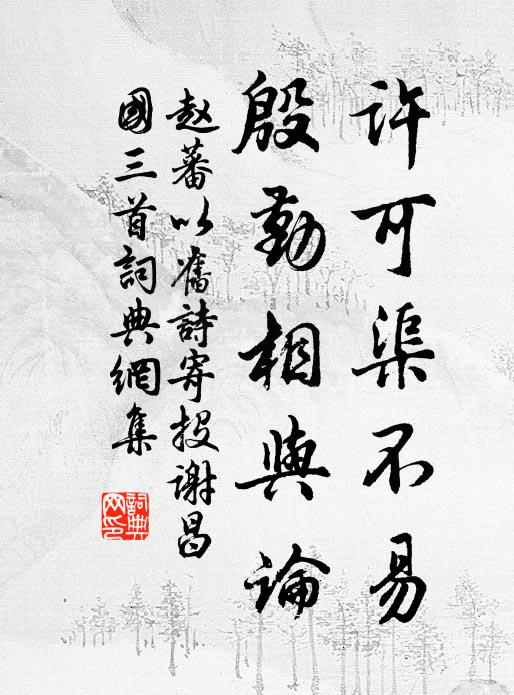 许可渠不易
殷勤相與論
赵蕃以舊詩寄投谢昌
國三首詞典網集
詞典
网印